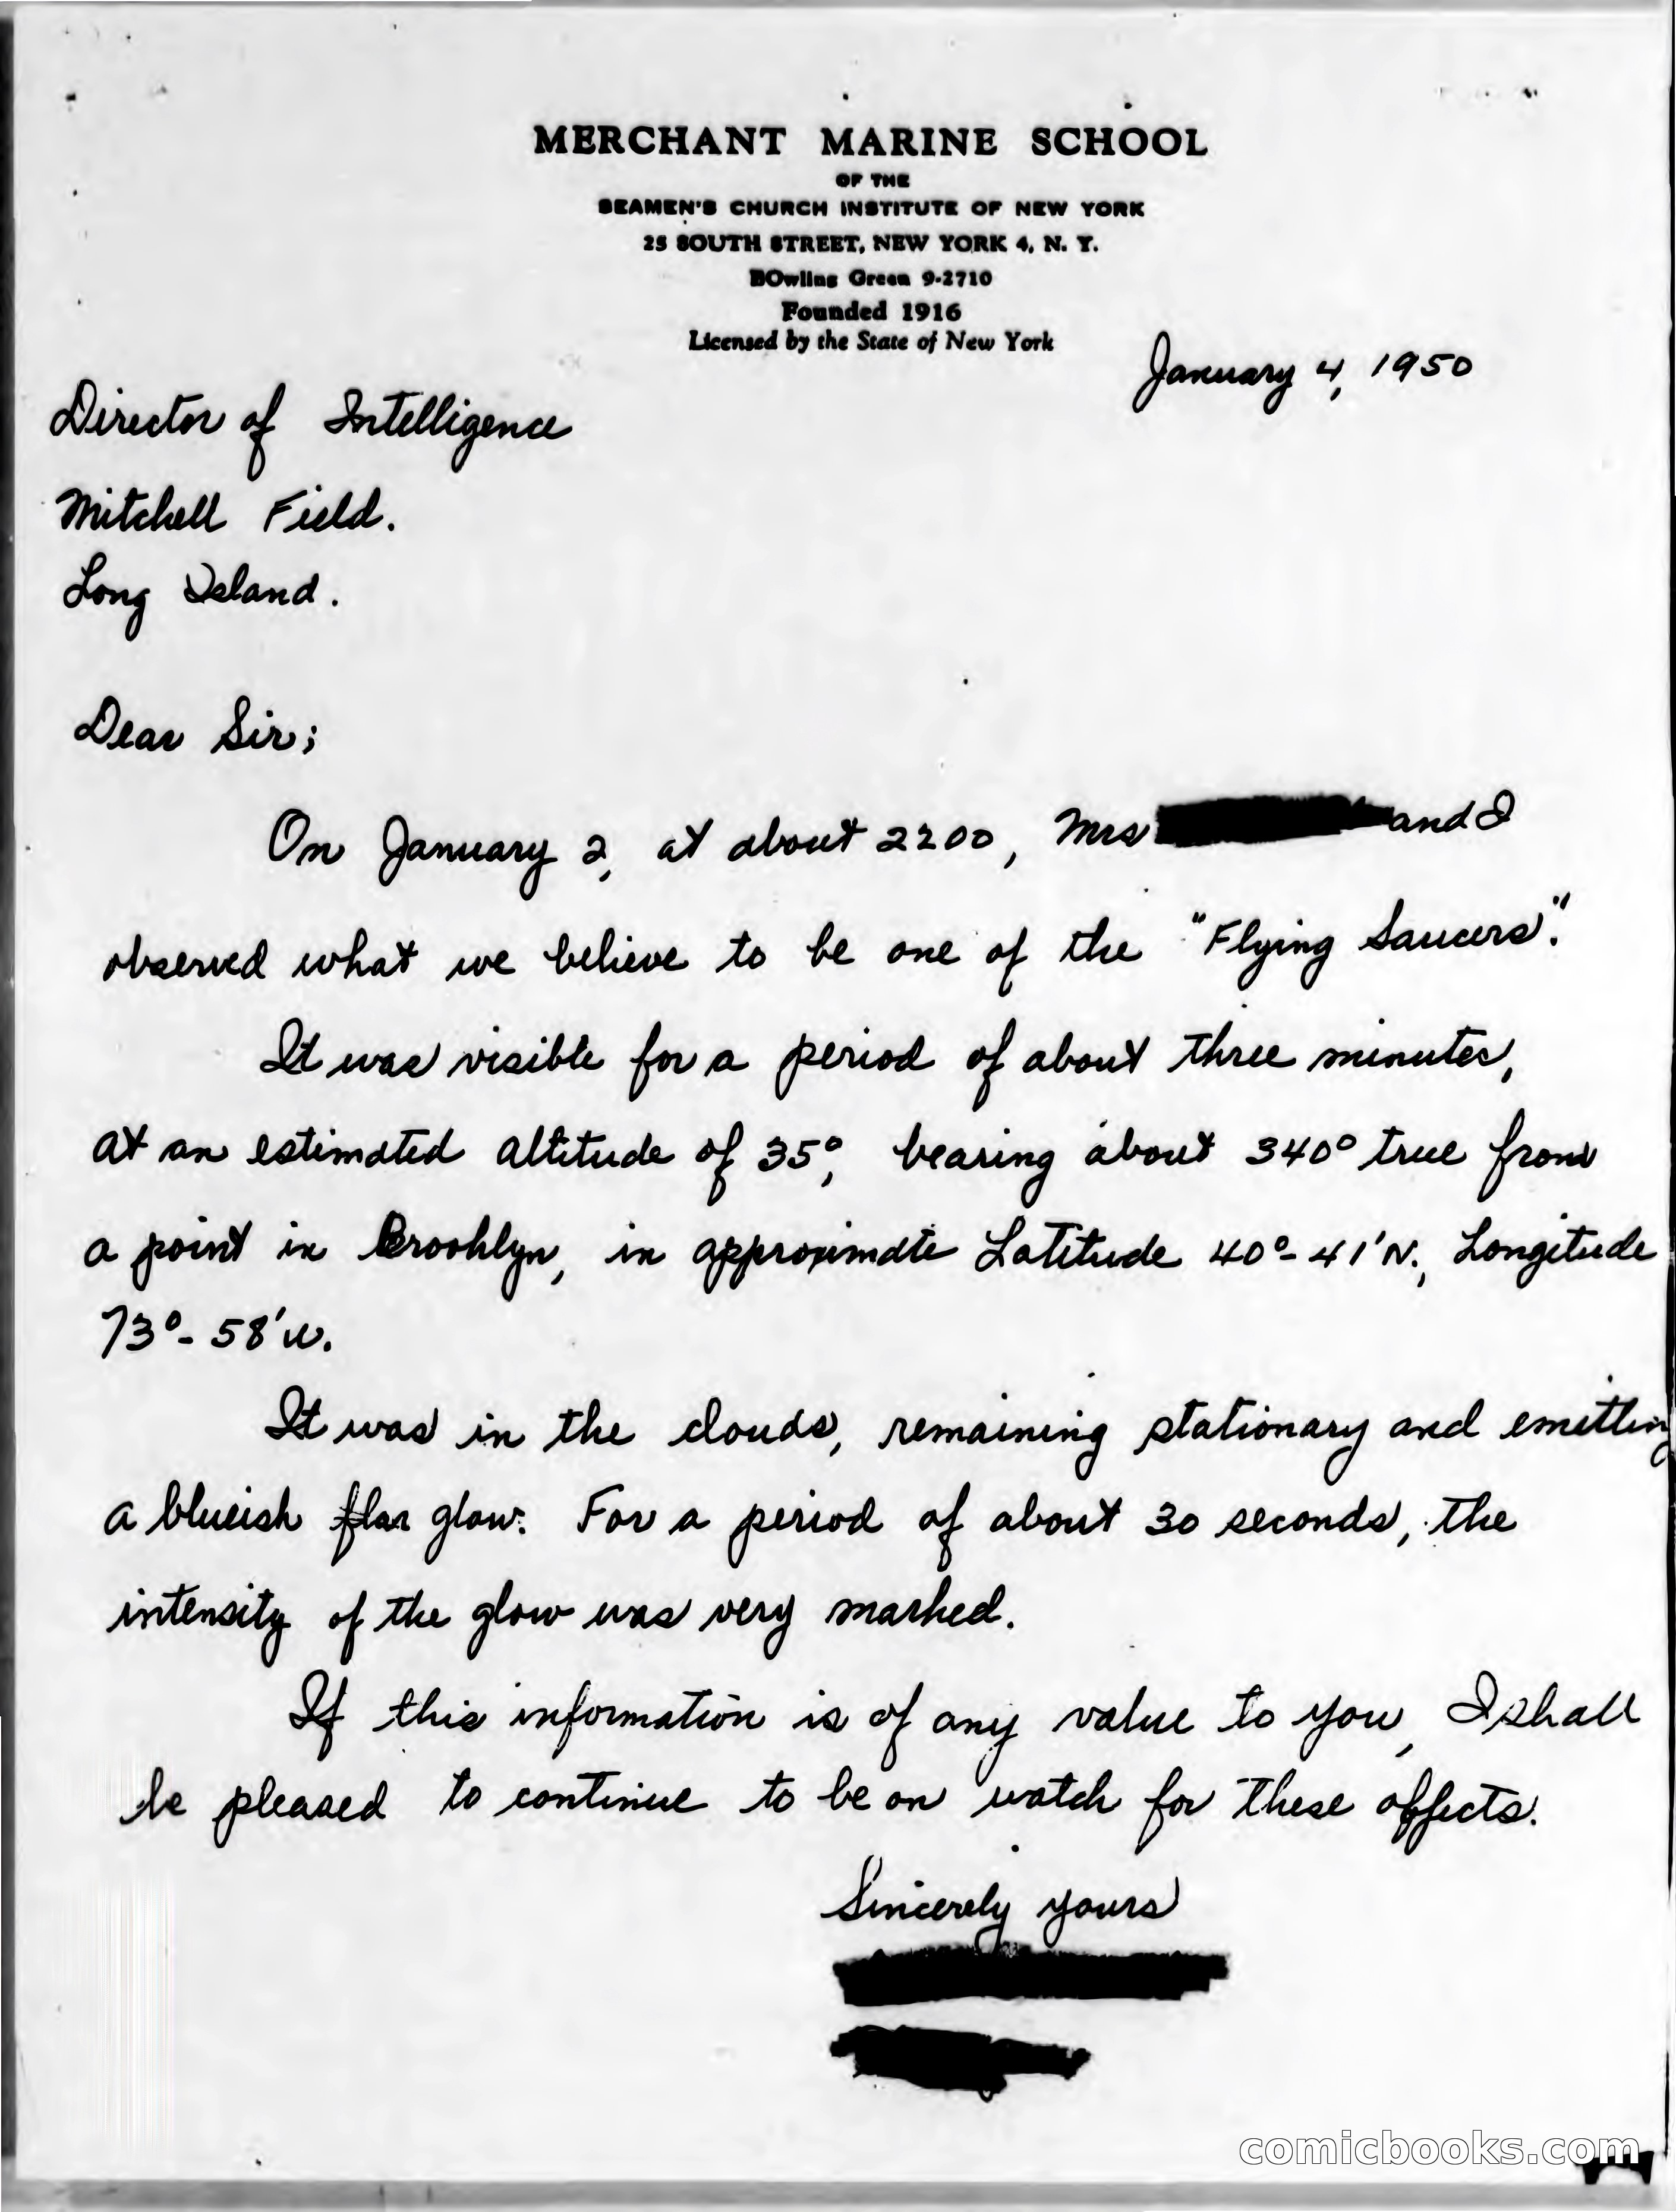 MERCHANT MARINE SCHOOL
OF THE
SEAMEN'S CHURCH INSTITUTE OF NEW YORK
25 SOUTH STREET, NEW YORK 4, N. Y.
BOwling Green 9-2710
Founded 1916
Licensed by the State of New York
January 4, 1950
Director of Intelligence
Mitchell Field.
Long Island.
Dear Sir;
On January 2, at about 2200, Mrs and I
observed what we believe to be one of the "Flying Saucers".
It was visible for a period of about three minutes,
at an estimated altitude of 35°, bearing about 340° true from
a point in Brooklyn, in approximate Latitude 40°-41'N., Longitude
73°-58'W.
It was in the clouds, remaining stationary and emitting
a blueish flar glow. For a period of about 30 seconds, the
intensity of the glow was very marked.
If this information is of any value to you, I shall
be pleased to continue to be on watch for these affects.
Sincerely yours
comicbooks.com